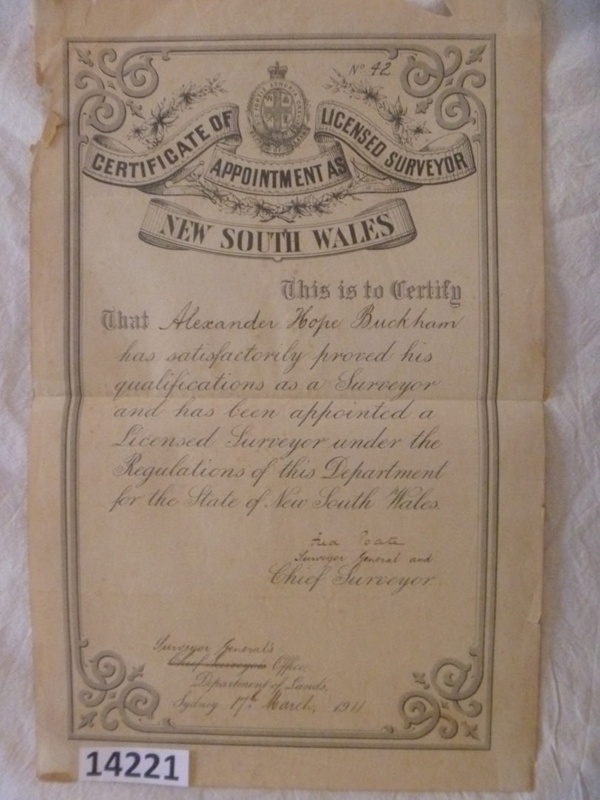 Nº 42
CERTIFICATE OF APPOINTMENT AS LICENSED SURVEYOR
NEW SOUTH WALES
This is to Certify
That Alexander Hope Buckham
has satisfactorily proved his
qualifications as a Surveyor
and has been appointed a
Licensed Surveyor under the
Regulations of this Department
for the State of New South Wales.
Surveyor General and
Chief Surveyor.
Surveyor General's
Chief Surveyors Office
Department of Lands,
Sydney 17th March, 1911
14221